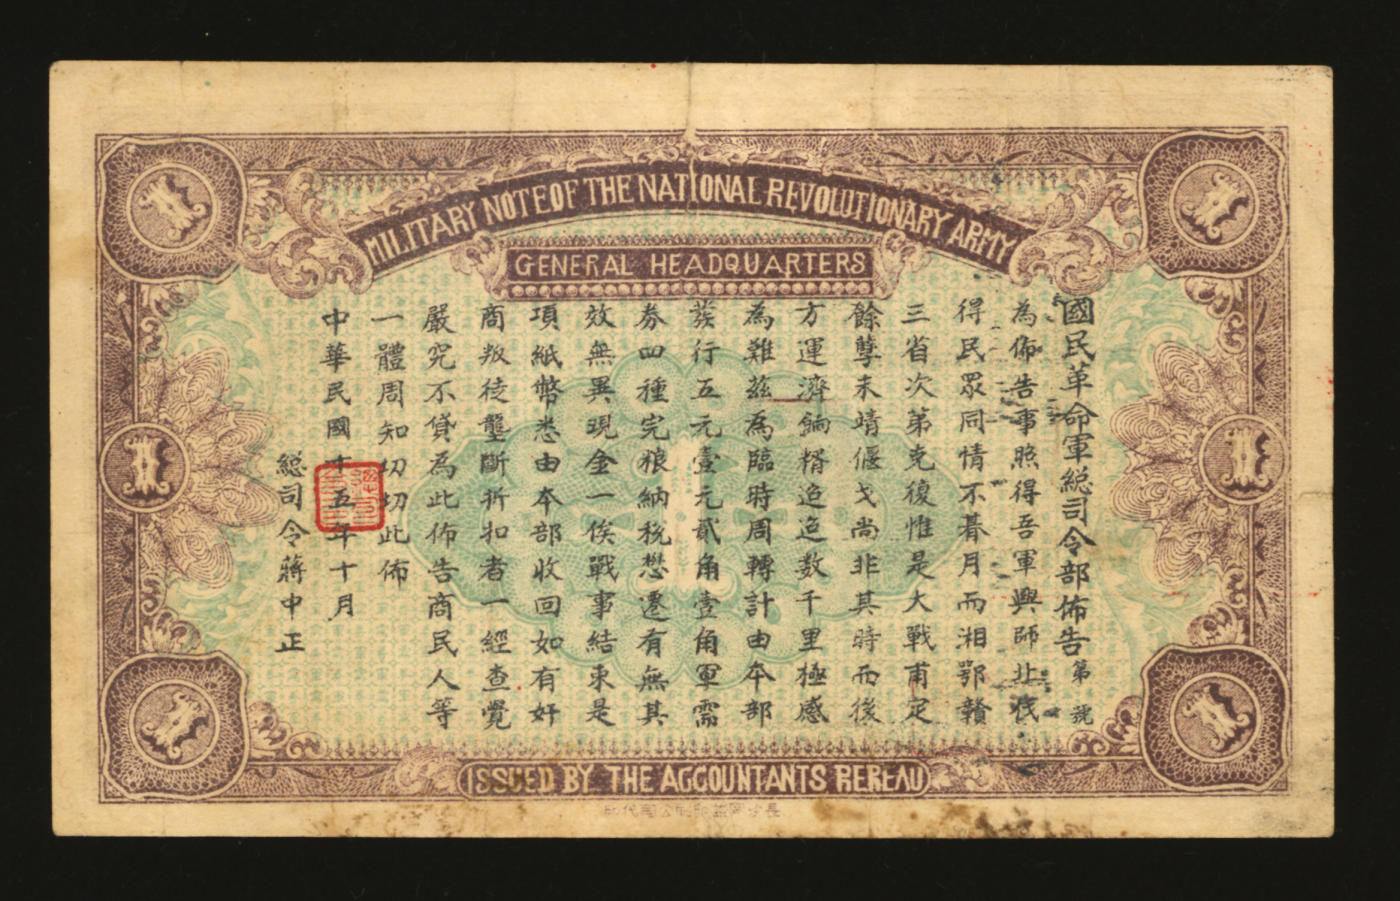 MILITARY NOTE OF THE NATIONAL REVOLUTIONARY ARMY
GENERAL HEADQUARTERS
國民革命軍総司令部佈告第 號
為佈告事照得吾軍興師北伐
得民眾同情不朞月而湘鄂贛
三省次第克復惟是大戰甫定
餘孽未靖偃戈尚非其時而後
方運濟餉糈迢迢数千里極感
為難茲為臨時周轉計由本部
發行五元壹元貳角壹角軍需
券四種完粮納税懋遷有無其
效無異現金一俟戰事結束是
項紙幣悉由本部收回如有奸
商叛徒壟斷折扣者一經查覺
嚴究不貸為此佈告商民人等
一體周知切切此佈
中華民國十五年十月
総司令蔣中正
ISSUED BY THE ACCOUNTANTS REREAU
1
1
1
1
1
1